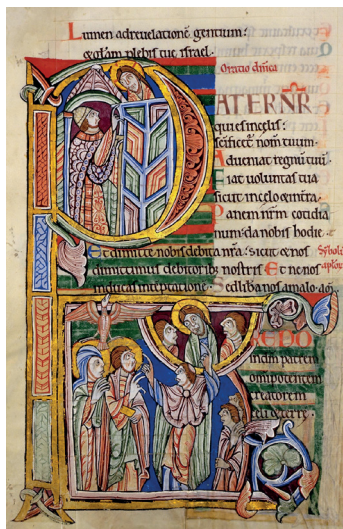 Lumen ad revelationē gentium:
& glām plebis tuę israel.
Oratio dn̄ica
PATER NR̄
qui es in cęlis:
sc̄ificet nom̄ tuum.
Adveniat regnū tuū.
Fiat voluntas tua
sicut in cęlo & in tra.
Panem nr̄m cotidia
num: da nobis hodie.
Et dimitte nobis debita nr̄a: sicut & nos
Sȳbolū
dimittimus debitorib; nostris. Et ne nos
aplor
inducas in teptatione. Sed liba nos a malo.
CREDO
in dm patrem
omnipotentem
creatorem